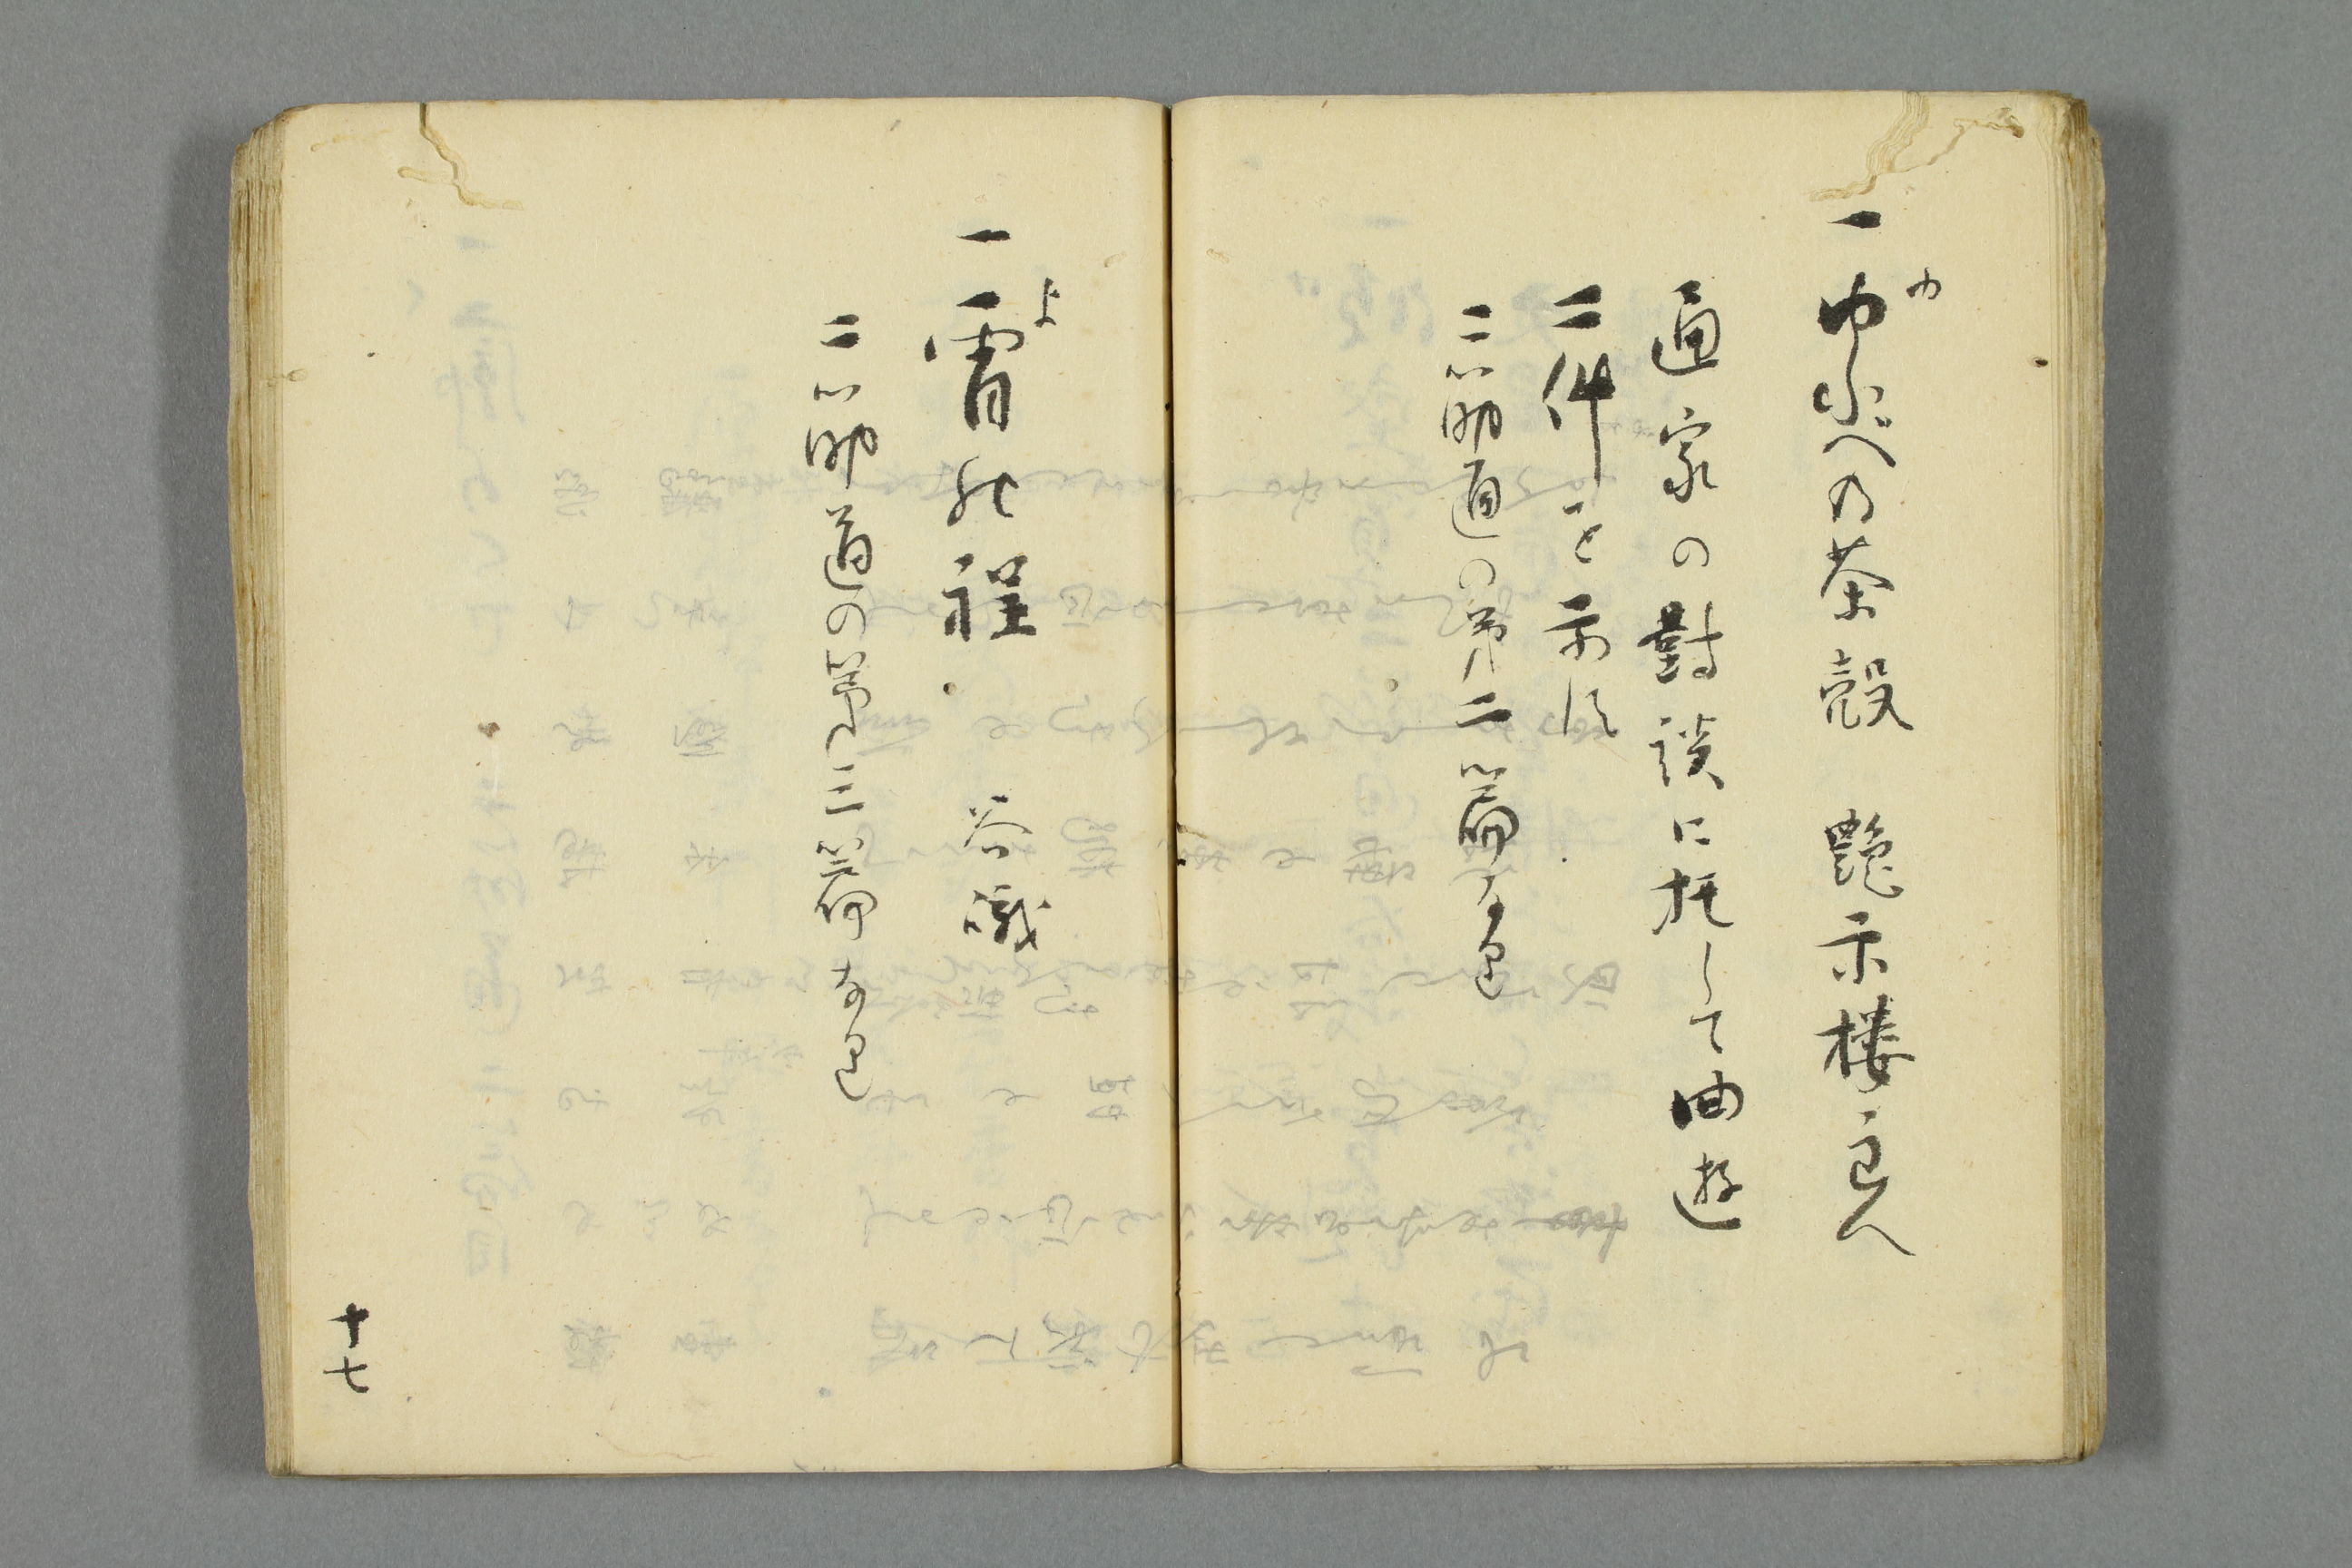 ゆ
一ゆふべの茶殻 艶示楼主人
通家の對談に托して曲遊
二件を示す
二筋道の第二篇なり
よ
一宵の程 谷峨
二筋道の第三篇なり
十七